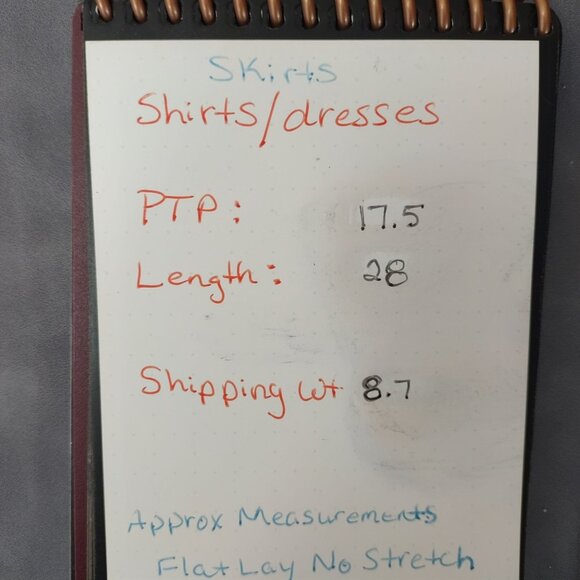 Skirts
Shirts/dresses
PTP: 17.5
Length: 28
Shipping Wt 8.7
Approx Measurements
Flat Lay No Stretch